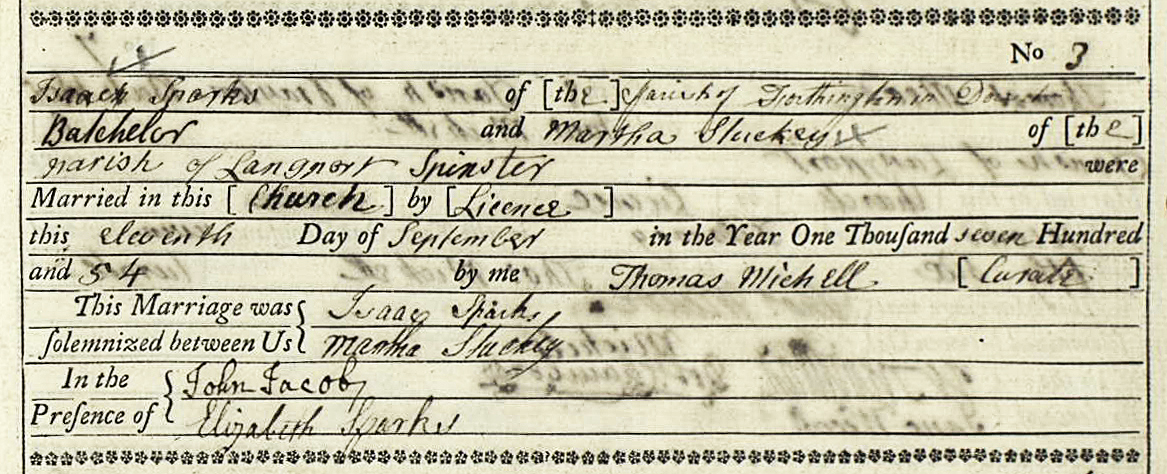 No 3
Isaack Sparks of [the] Parish of Forthington in Dorset
Batchelor and Martha Stuckey of [the]
parish of Langport Spinster were
Married in this [Church] by [Licence]
this eleventh Day of September in the Year One Thouſand seven Hundred
and 54 by me Thomas Michell [Curate]
This Marriage was Isaac Sparks
ſolemnized between Us Martha Stuckey
In the John Jacob
Preſence of Elizabeth Sparks